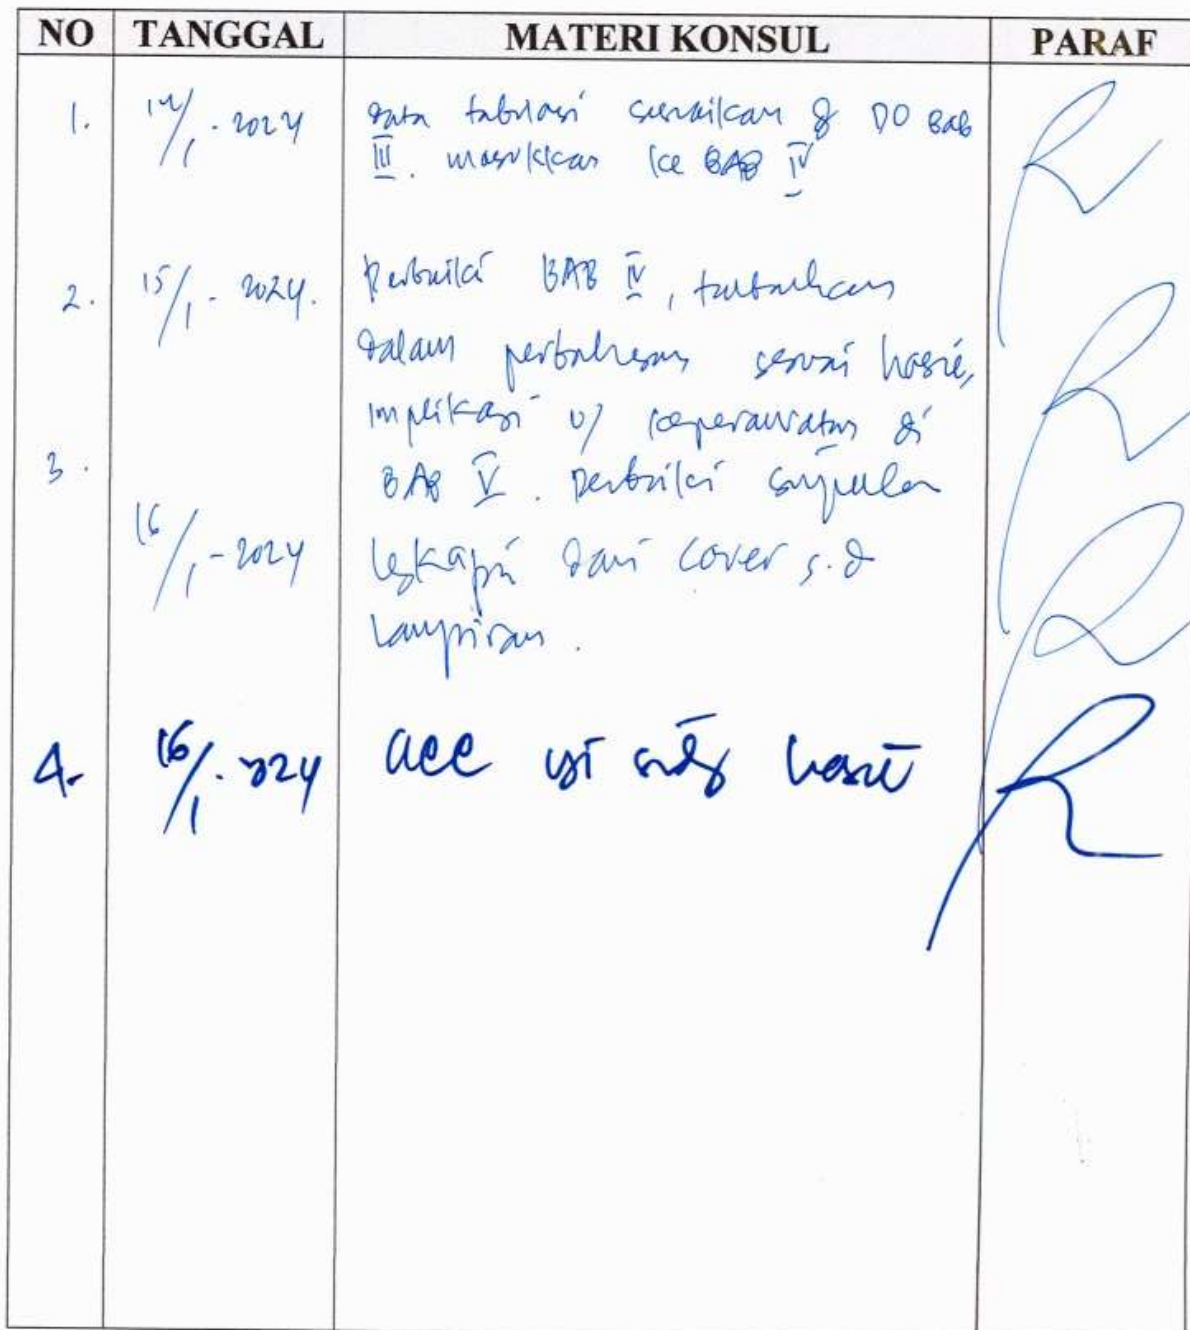 NO TANGGAL MATERI KONSUL PARAF
1. 14/1 - 2024 data tabulasi sesuaikan dg DO Bab
III. masukkan ke BAB IV
2. 15/1 - 2024. Perbaiki BAB IV, tambahkan
dalam pembahasan sesuai hasil,
implikasi u/ keperawatan di
3. BAB V. Perbaiki simpulan
16/1 - 2024 Lengkapi dari cover s.d
Lampiran.
4. 16/1 - 2024 acc hasil